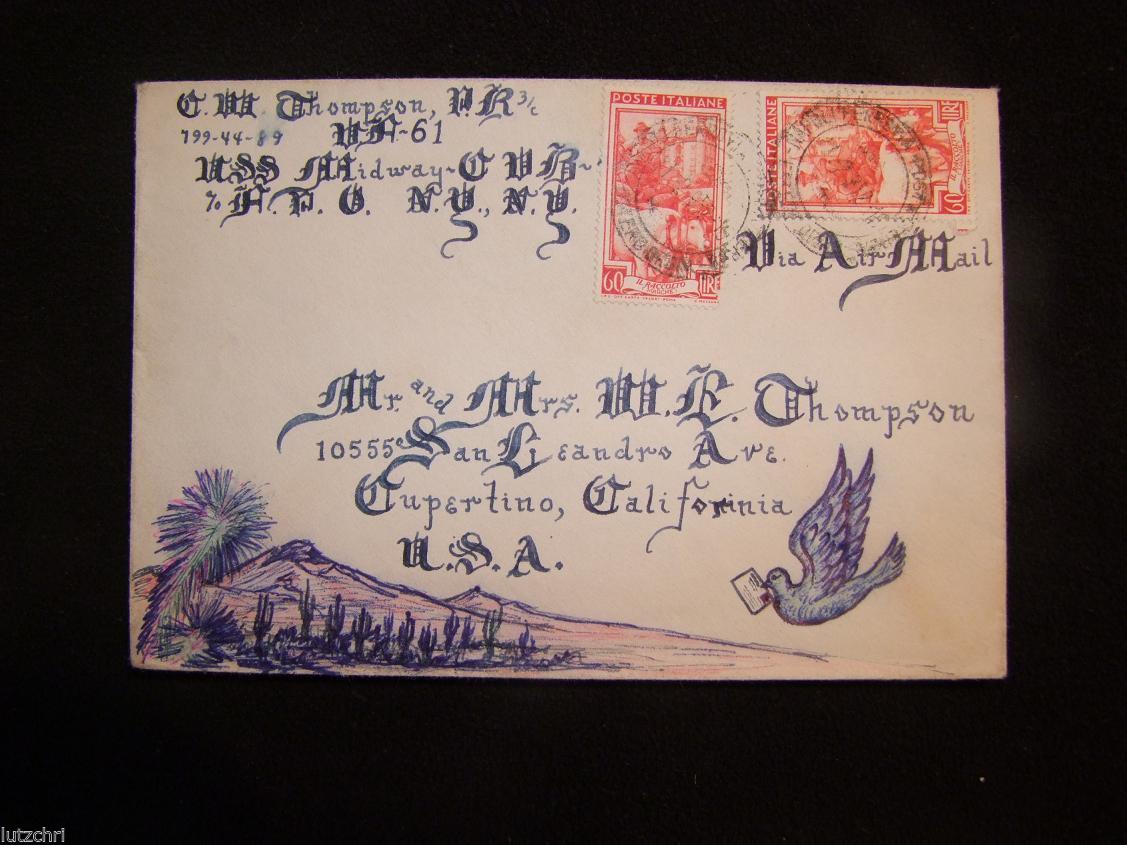 C. W. Thompson, P.R 3/c
799-44-89 VA-61
USS Midway-CVB-
% F. P. O. N. Y., N. Y.
POSTE ITALIANE
60 LIRE
IL RACCOLTO
MARCHE
POSTE ITALIANE
60 LIRE
IL RACCOLTO
Via Air Mail
Mr. and Mrs. W. R. Thompson
10555 San Leandro Ave.
Cupertino, Califorinia
U.S.A.
lutzchri